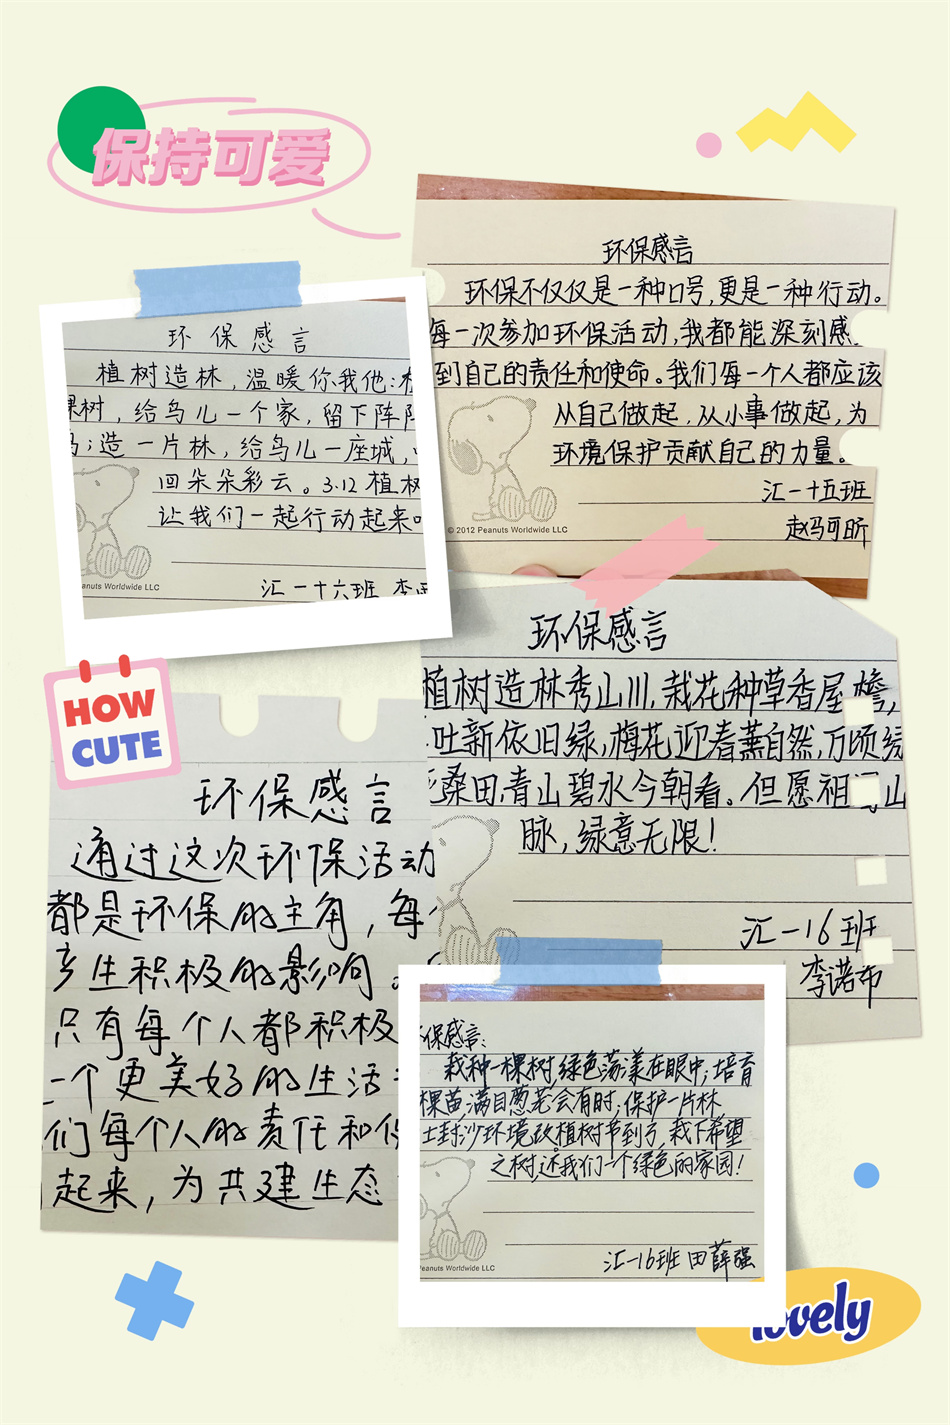 保持可爱
环保感言
环保不仅仅是一种口号,更是一种行动。
每一次参加环保活动,我都能深刻感
到自己的责任和使命。我们每一个人都应该
从自己做起,从小事做起,为
环境保护贡献自己的力量。
汇一十五班
赵马可昕
© 2012 Peanuts Worldwide LLC
环保感言
植树造林,温暖你我他:
棵树,给鸟儿一个家,留下阵阵
造一片林,给鸟儿一座城,
回朵朵彩云。3.12植树
让我们一起行动起来吧
anuts Worldwide LLC
汇一十六班 李
环保感言
植树造林秀山川,栽花种草香屋檐,
吐新依旧绿,梅花迎春燕自然,万顷绿
桑田,青山碧水今朝看。但愿祖 山
脉,绿意无限!
汇一16班
李诺布
HOW
CUTE
环保感言
通过这次环保活动
都是环保的主角,每
产生积极的影响。
只有每个人都积极
一个更美好的生活
们每个人的责任和
起来,为共建生态
保感言:
栽种一棵树,绿色荡漾在眼中;培育
棵苗,满目葱茏会有时,保护一片林
土封沙环境改.植树节到了,栽下希望
之树,还我们一个绿色的家园!
Peanuts Worldwide LLC
汇一16班 田薛强
lovely